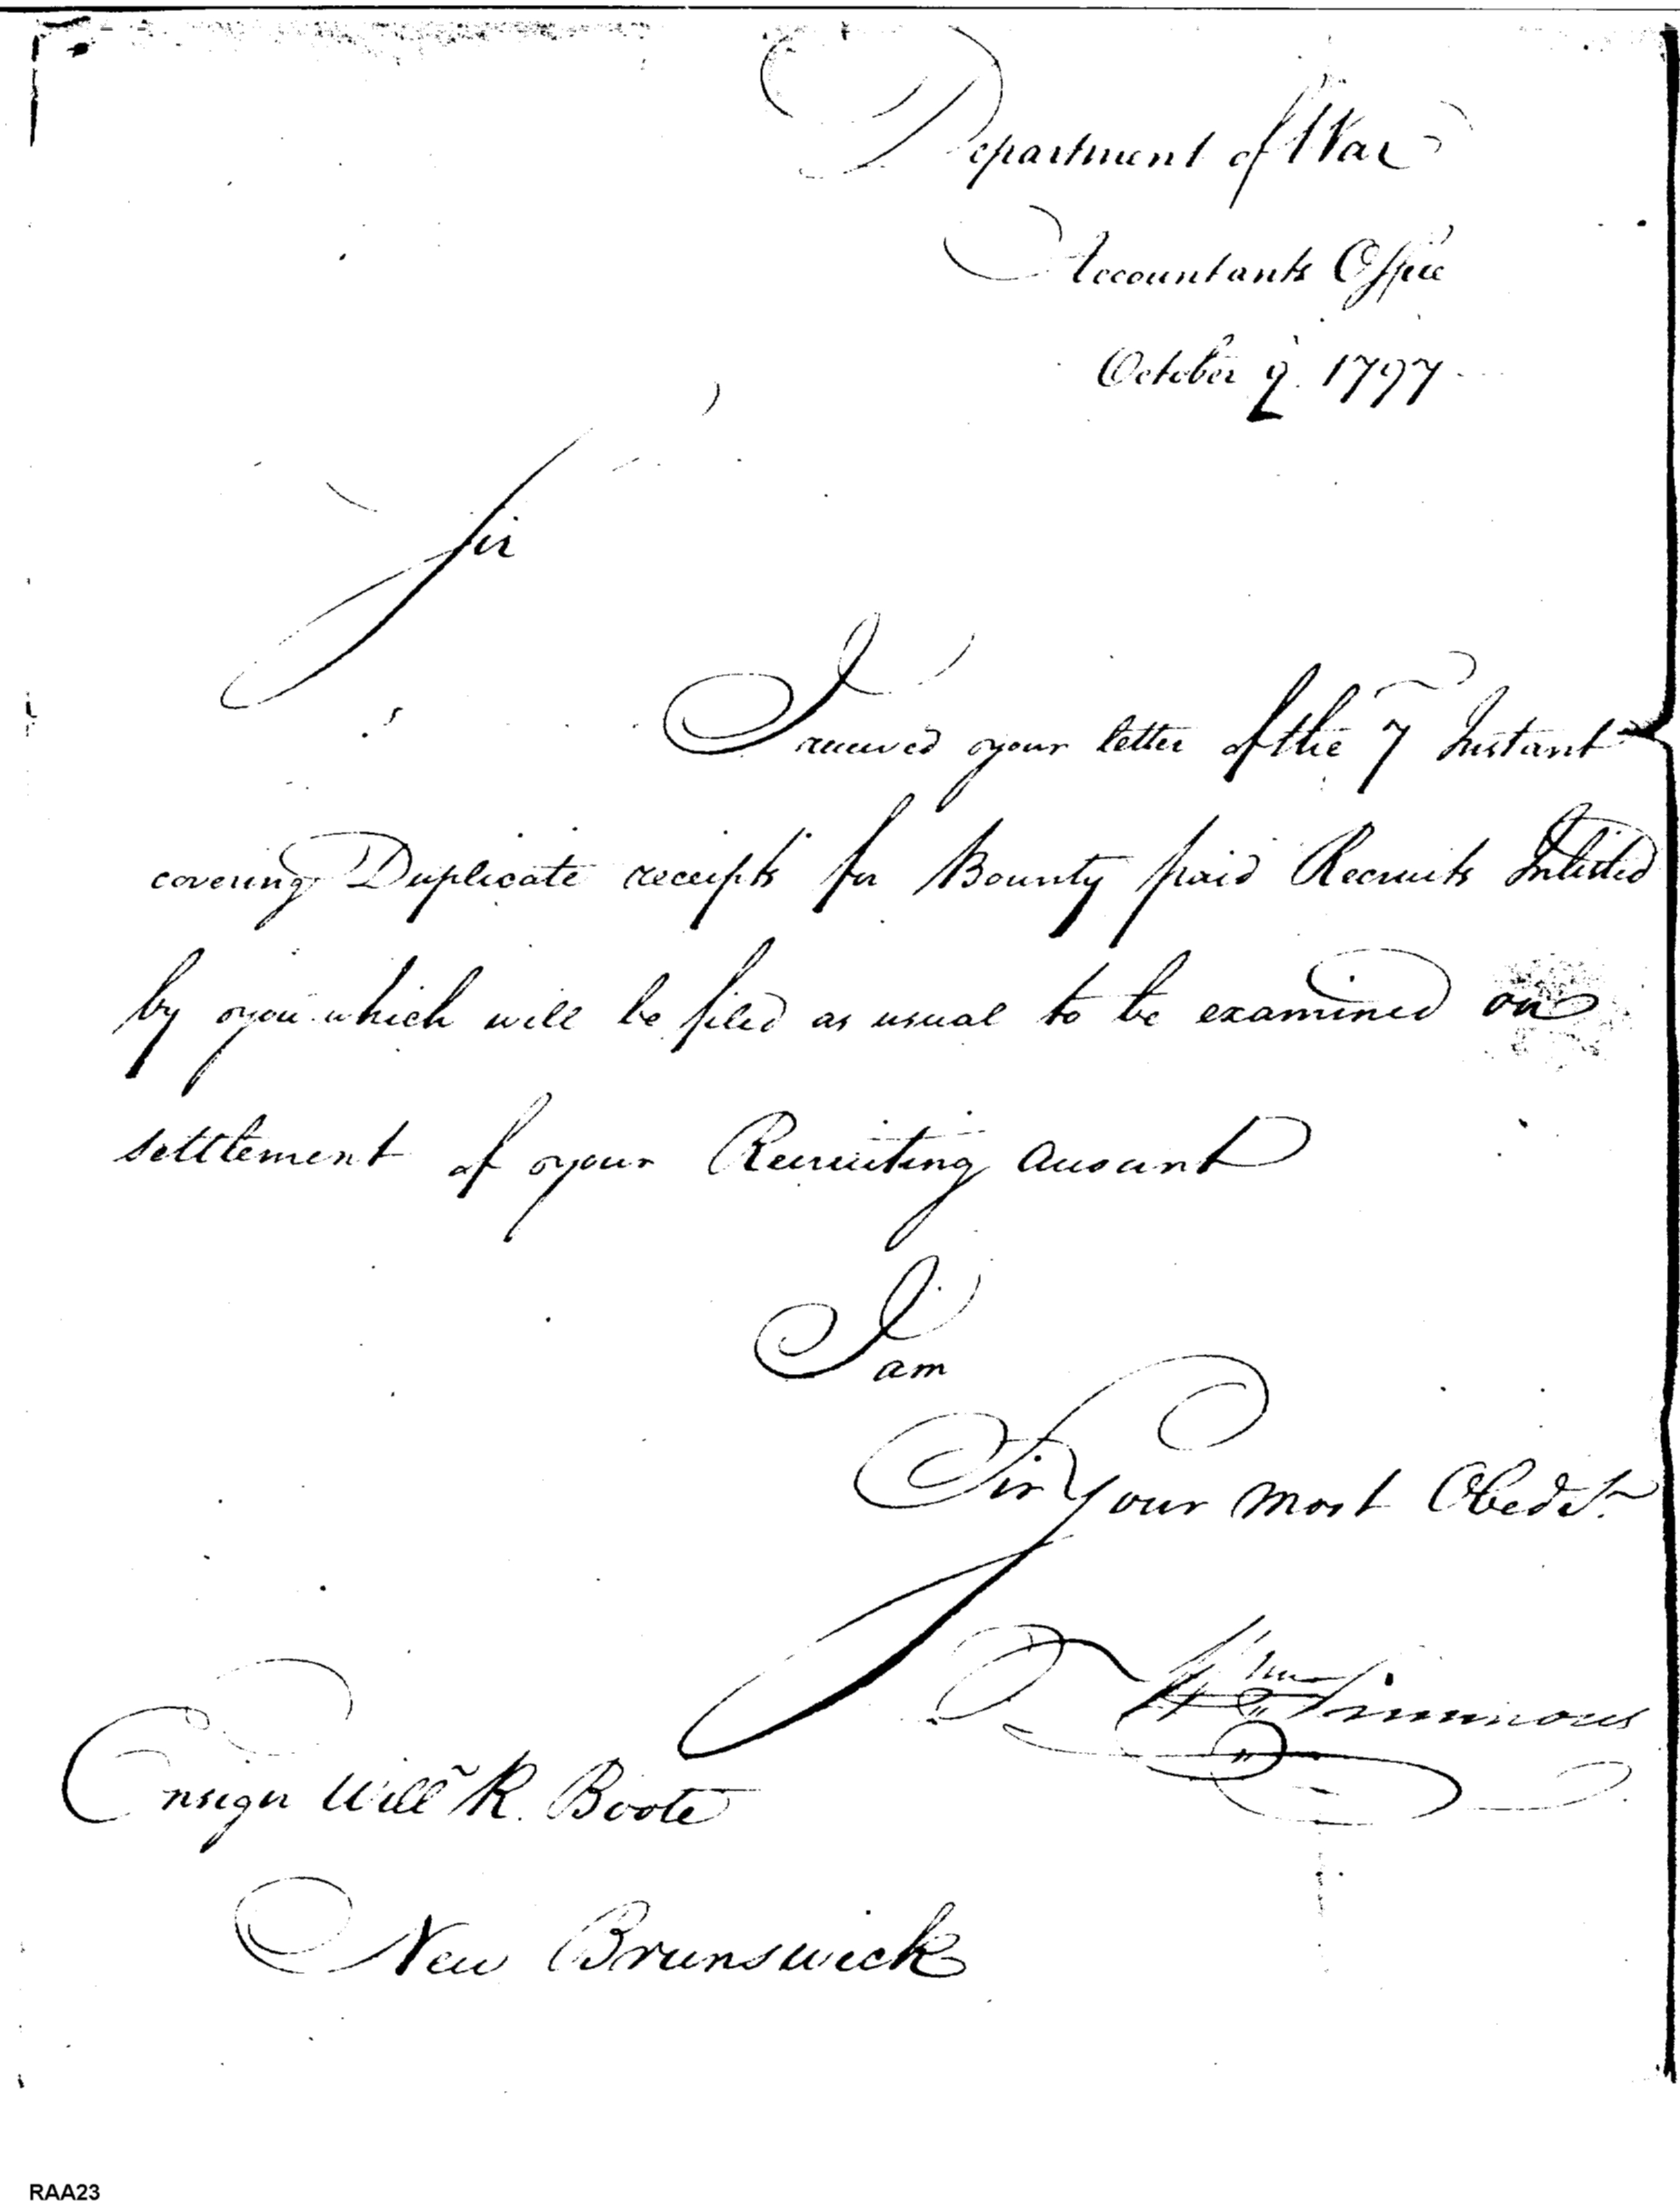 Department of War
Accountants Office
October 9. 1797
Sir
I received your letter of the 7 Instant
covering Duplicate receipts for Bounty paid Recruits Inlisted
by you which will be filed as usual to be examined on
settlement of your Recruiting Account
I am
Sir Your most Obedt.
Wm Simmons
Ensign Willm R. Boote
New Brunswick
RAA23